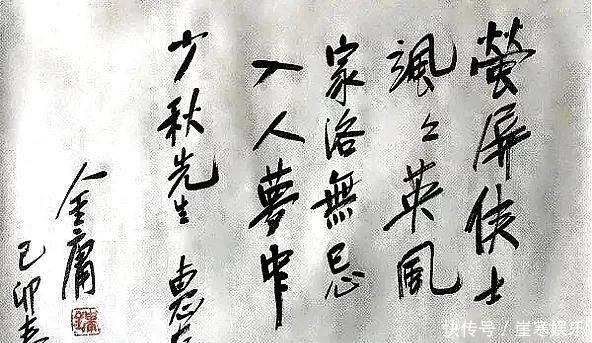 螢屏俠士
颯々英風
家洛無忌
入人夢中
少秋先生 惠存
金庸
己卯春
快传号/崖寒娱乐